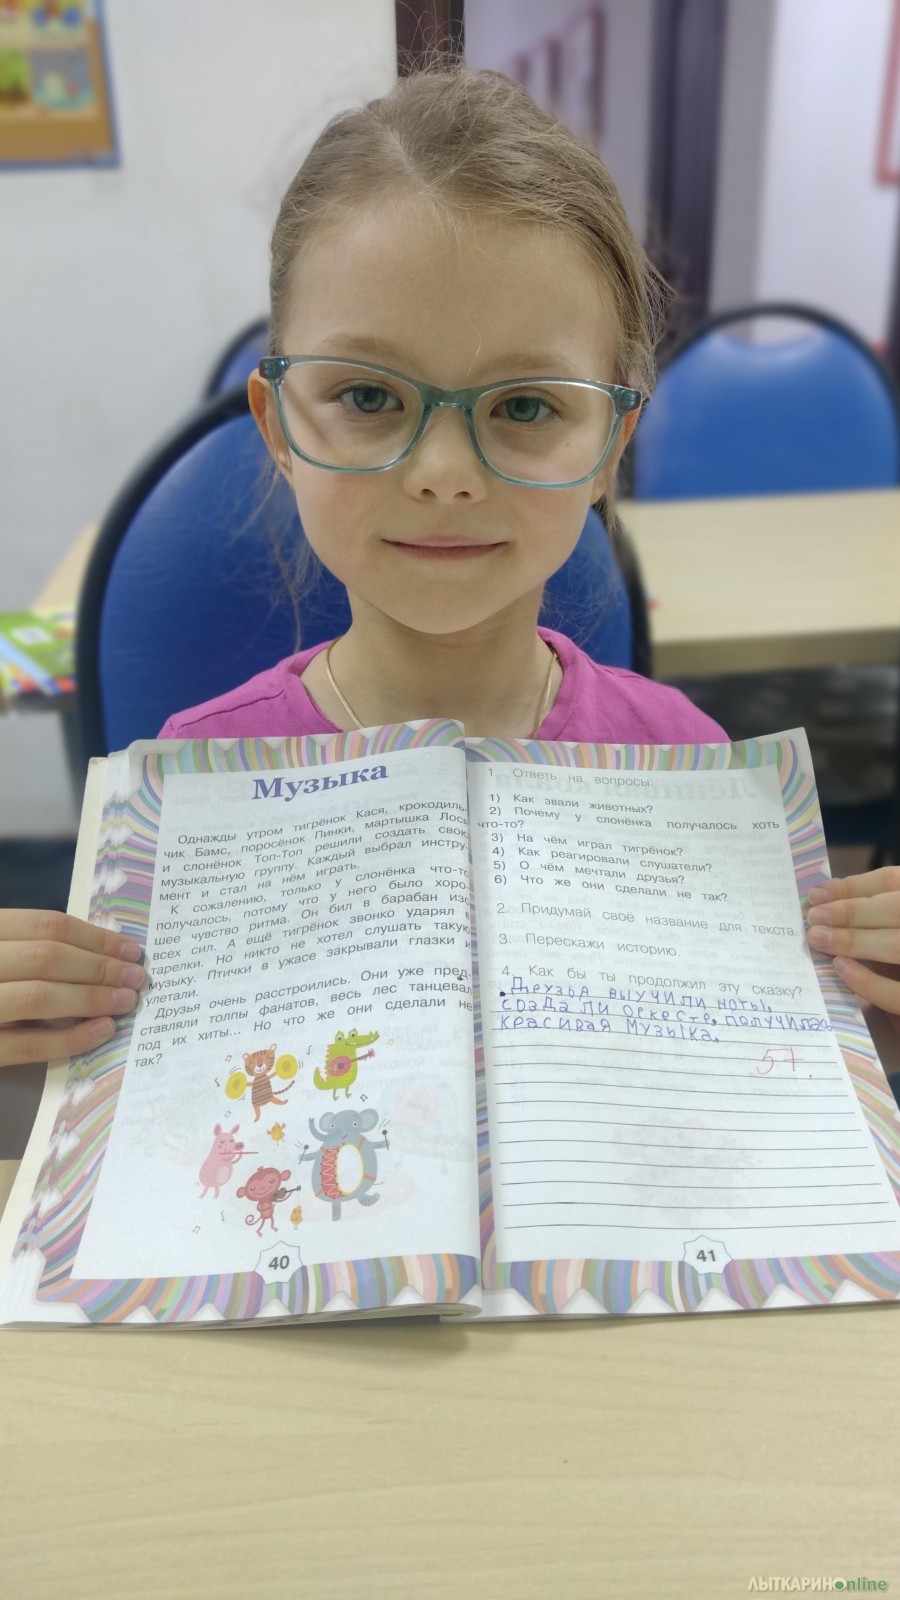 Музыка
Однажды утром тигрёнок Кася, крокодиль-
чик Бамс, поросёнок Пинки, мартышка Лося
и слонёнок Топ-Топ решили создать свою
музыкальную группу. Каждый выбрал инстру-
мент и стал на нём играть.
К сожалению, только у слонёнка что-то
получалось, потому что у него было хоро-
шее чувство ритма. Он бил в барабан изо
всех сил. А ещё тигрёнок звонко ударял в
тарелки. Но никто не хотел слушать такую
музыку. Птички в ужасе закрывали глазки и
улетали.
Друзья очень расстроились. Они уже пред-
ставляли толпы фанатов, весь лес танцевал
под их хиты... Но что же они сделали не
так?
40
1. Ответь на вопросы.
1) Как звали животных?
2) Почему у слонёнка получалось хоть
что-то?
3) На чём играл тигрёнок?
4) Как реагировали слушатели?
5) О чём мечтали друзья?
6) Что же они сделали не так?
2. Придумай своё название для текста.
3. Перескажи историю.
4. Как бы ты продолжил эту сказку?
Друзья выучили ноты,
созда ли оркестр, получилась
красивая музыка.
5+.
41
ЛЫТКАРИНОnline